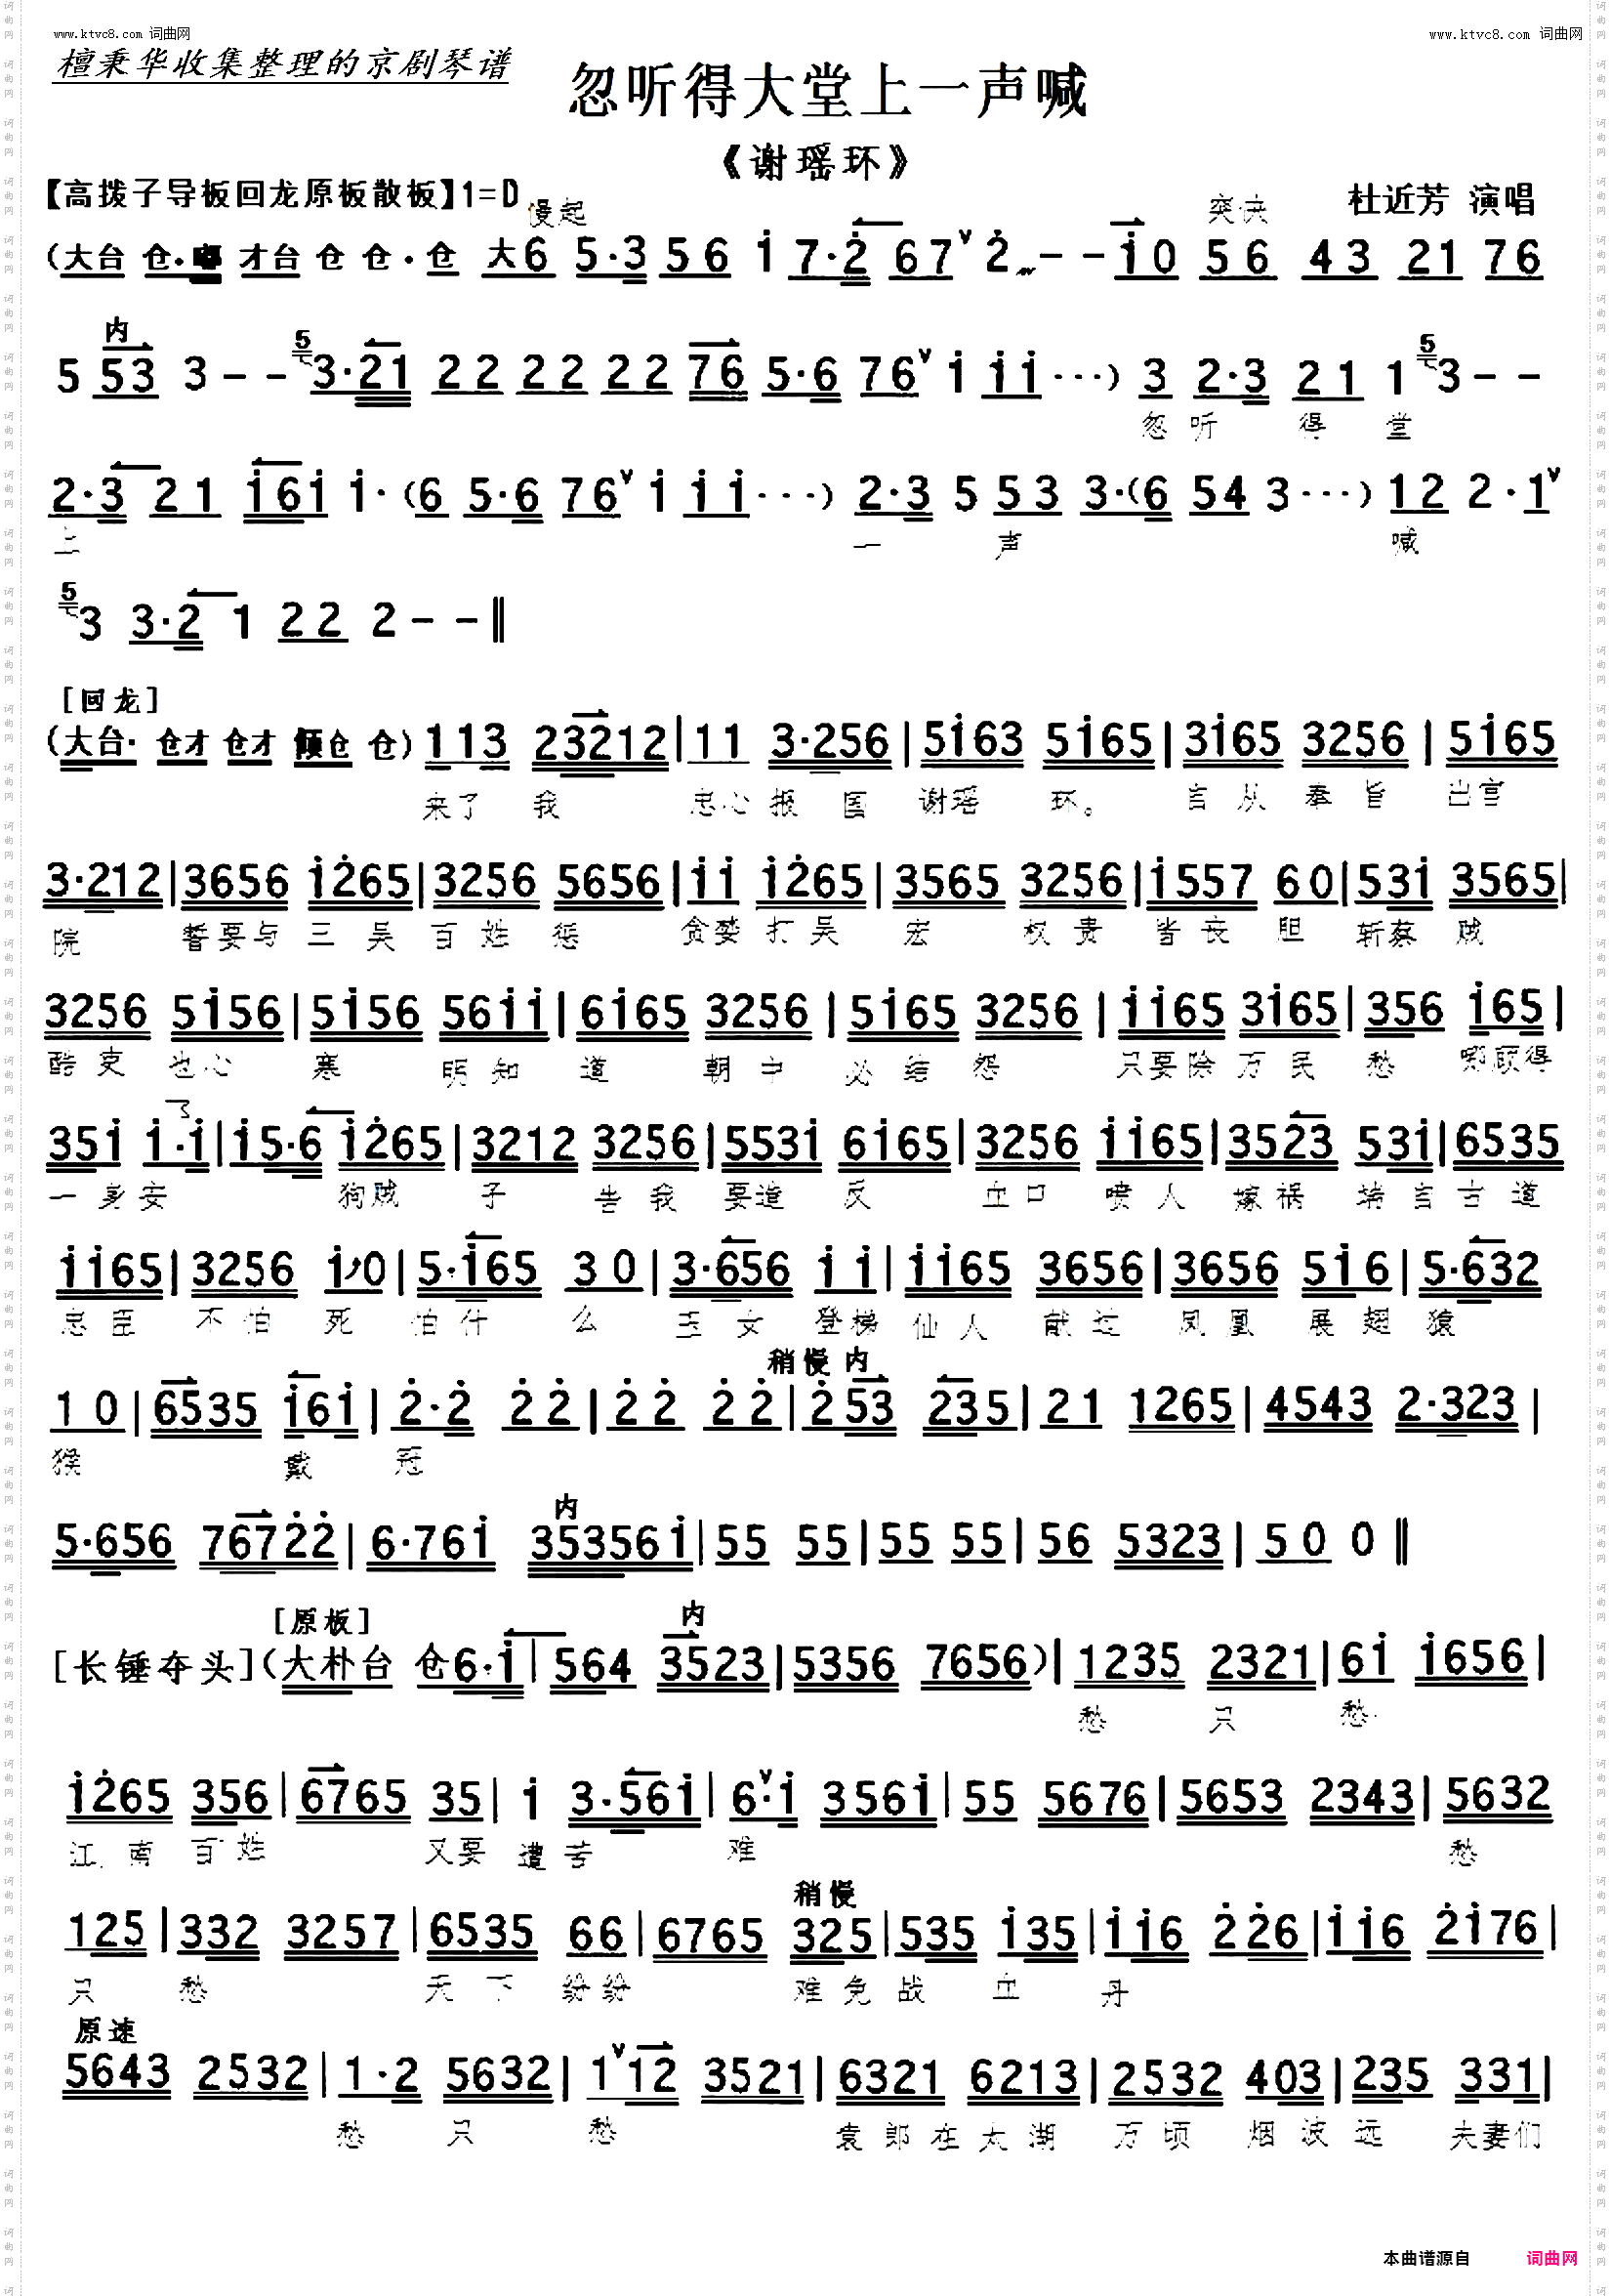 www.ktvc8.com 词曲网
www.ktvc8.com 词曲网
檀秉华收集整理的京剧琴谱
忽听得大堂上一声喊
《谢瑶环》
【高拨子导板回龙原板散板】1=D 慢起 突快 杜近芳 演唱
(大台 仓· 才台 仓 仓·仓 大6 5·3 56 i 7·2 67 2 -- i0 56 43 21 76
内
5 53 3-- 5 3·21 22 22 22 76 5·6 76 i ii ···) 3 2·3 21 1 5 3--
忽听 得 堂
2·3 21 i6i i·(6 5·6 76 i ii ···) 2·3 5 53 3·(6 54 3···) 12 2·1
上 一 声 喊
5 3 3·2 1 22 2--
[回龙]
(大台· 仓才 仓才 倾仓 仓) 113 23212|11 3·256|5i63 5i65|3i65 3256|5i65
来了 我 忠心报国 谢瑶 环。 言从 奉旨 出宫
3·212|3656 i265|3256 5656|ii i265|3565 3256|i557 60|53i 3565|
院 誓要与三吴百姓惩 贪婪打吴宏 权贵皆丧胆 斩蔡贼
3256 5i56|5i56 56ii|6i65 3256|5i65 3256|ii65 3i65|356 i65|
酷吏 也心 寒 明知 道 朝中 必结怨 只要除万民 愁 哪顾得
35i i·i|i5·6 i265|3212 3256|553i 6i65|3256 ii65|3523 53i|6535
一身安 狗贼 子 告我 要造 反 血口 喷人 嫁祸 端 自古道
ii65|3256 i0|5·i65 30|3·656 ii|ii65 3656|3656 5i6|5·632
忠臣 不怕 死 怕什 么 玉女登梯 仙人 献过 凤凰 展翅 猿
稍慢 内
10|6535 i6i|2·2 22|22 22|2 53 235|21 1265|4543 2·323|
猴 戴 冠
内
5·656 76722|6·76i 353561i|55 55|55 55|56 5323|50 0
[原板] 内
[长锤夺头](大朴台 仓6·i|564 3523|5356 7656)|1235 2321|6i i656|
愁 只 愁
i265 356|6765 35|i 3·56i|6·i 356i|55 5676|5653 2343|5632
江南 百姓 又要 遭苦 难 愁
稍慢
125|332 3257|6535 66|6765 325|535 i35|ii6 226|ii6 2i76|
只 愁 天下 纷纷 难免 战 血 丹
原速
5643 2532|1·2 5632|1 12 3521|6321 6213|2532 403|235 331|
愁 只 愁 袁郎在太湖 万顷 烟波 远 夫妻们
本曲谱源自 词曲网